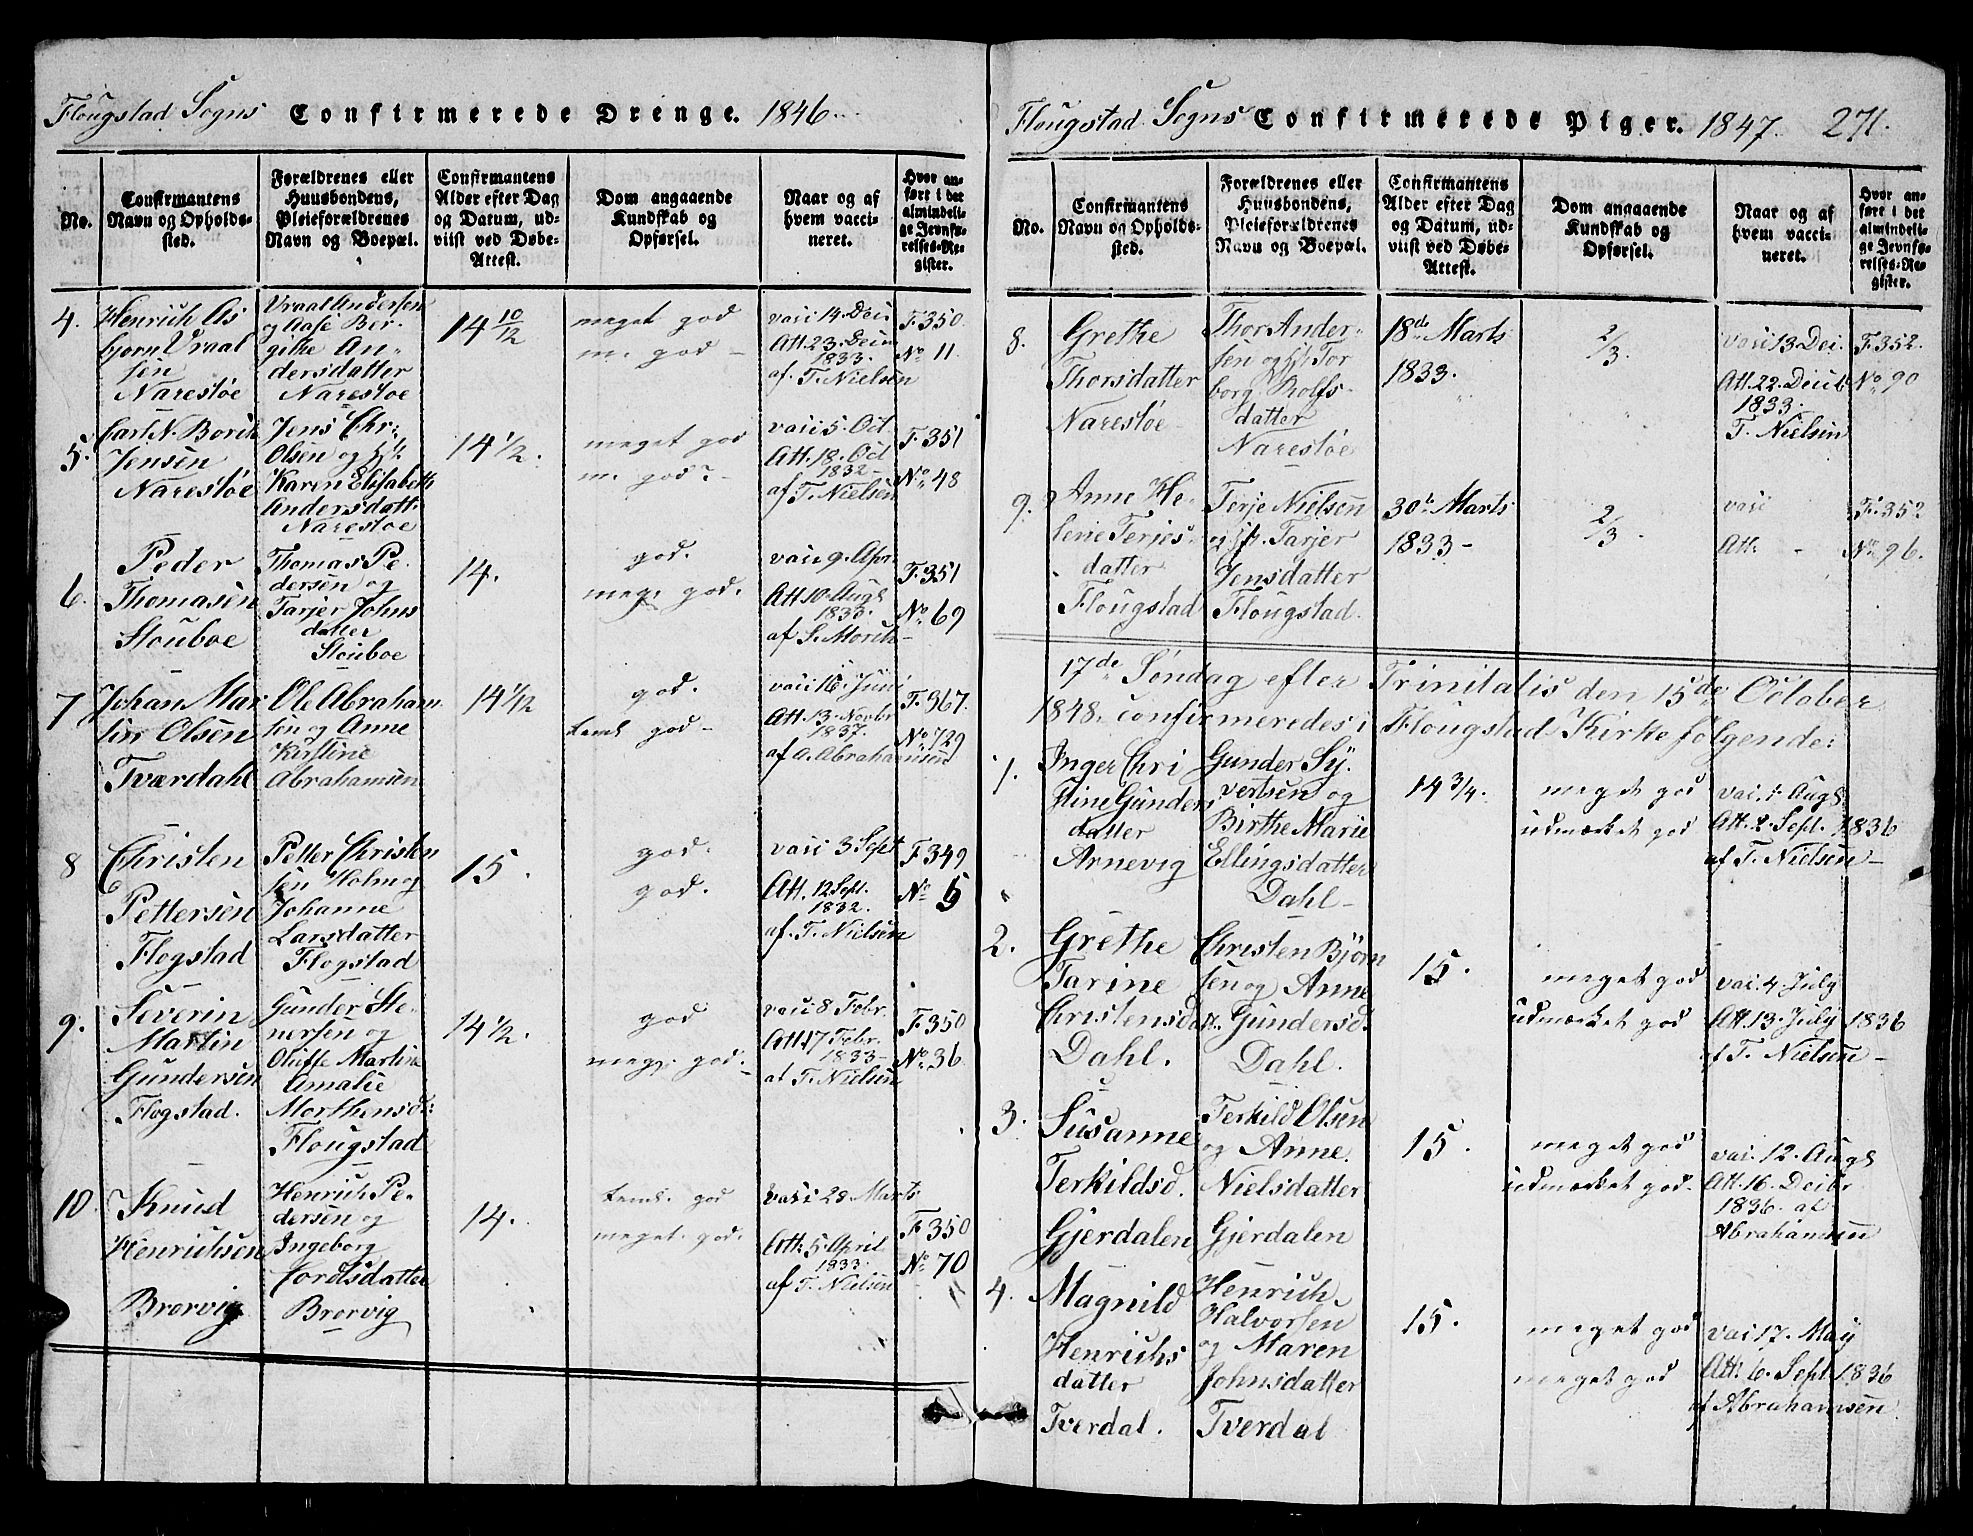 Flougstad Sogns Confirmerede Drenge. 1846.
No.
Confirmantens
Navn og Opholds-
sted.
Forældrenes eller
Huusbondens,
Pleieforældrenes
Navn og Boepæl.
Confirmantens
Alder efter Dag
og Datum, ud-
viist ved Døbe-
Attest.
Dom angaaende
Kundskab og
Opførsel.
Naar og af
hvem vacci-
neret.
Hvor an-
ført i det
almindeli-
ge Jevnfø-
relses-Re-
gister.
4.
Henrich As
bjorn Vraal
sen
Narestøe
Vraal Andersen
og Aase Ber-
githe An-
dersdatter
Narestoe
14 10/12
meget god
m. god -
vacc 14. Deci
Att. 23. Decim
1833.
af. T. Nielsen
F. 350.
No 11.
5.
Carl N. Borik
Jensen
Narestøe
Jens Chr.
Olsen og H.
Karen Elisabeth
Andersdatt.
Narestoe
14 1/2.
meget god
m. god -
vacc 5. Oct
Att. 18. Oct
1832-
af T. Nielsen
F. 351
No 48
6.
Peder
Thomasen
Stouboe
Thomas Pe-
dersen og
Tarjer Johns
datter
Stouboe
14.
god.
meg. god.
vacc 9. Apr.
Att 10. Augs
1833.
af S. Morch-
F. 351
No. 69
7
Johan Mar
tin Olsen
Tværdahl
Ole Abraham
sen og Anne
Kirstine
Abrahamsen
14 1/12
god.
teml. god -
vacc 16. Juni
Att. 13. Novbr
1837.
af A. Abrahamsen
F. 367.
No 729
8
Christen
Pettersen
Flogstad
Petter Christen
sen Holm og
Johanne
Larsdatter
Flogstad
15.
god.
god.
vacc 3 Sept
Att. 12 Sept.
1832.
af. T. Nielsen
F 349
No 5
9.
Severin
Martin
Gundersen
Flogstad.
Gunder Ste-
nersen og
Oluffe Martine
Amalie
Morthensd:
Flougstad
14 1/2.
god
meg. god.
vacc 8 Febr.
Att. 17 Febr.
1833-
af T. Nielsen
F. 350
No. 36
10.
Knud
Henrichsen
Brørvig
Henrich Pe-
dersen og
Ingeborg
Cordtsdatter
Brørvig
14.
teml. god
meget. god.
vacc 28 Marts
Att. 5 April
1833.
af T. Nielsen
F 350
No. 70
Flougstad Sogns Confirmerede Piger. 1847. 271.
No.
Confirmantens
Navn og Opholds-
sted.
Forældrenes eller
Huusbondens,
Pleieforældrenes
Navn og Boepæl.
Confirmantens
Alder efter Dag
og Datum, ud-
viist ved Døbe-
Attest.
Dom angaaende
Kundskab og
Opførsel.
Naar og af
hvem vacci-
neret.
Hvor an-
ført i det
almindeli-
ge Jevnfø-
relses-Re-
gister.
8.
Grethe
Thorsdatter
Narestøe
Thor Ander-
sen og H. Tor
borg Rolfs-
datter
Narestøe
18de Marts
1833.
2/3.
vacc 13. Dec.
Att. 22. Decib
1833.
T. Nielsen
F. 352.
No 90
9.
Anne He-
lene Terjes-
datter
Flougstad
Terje Nielsen
og H. Tarjer
Jensdatter
Flougstad.
30te Marts
1833 -
2/3.
vacc
Att. -
F. 352
No. 96.
17de Søndag efter Trinitatis den 15de October
1848. confirmeredes i Flougstad Kirke følgende:
1.
Inger Chri
stine Gunders
datter
Arnevig
Gunder Sy-
vertsen og
Birthe Marie
Ellingsdatter
Dahl -
14 3/4.
meget god
udmærket god
vac. 1 Augs
Att. 2. Sept. 1836
af T. Nielsen -
2.
Grethe
Tarine
Christensdatt.
Dahl.
Christen Bjørn
sen og Anne
Gundersd.
Dahl.
15.
meget god
udmærket god
vac. 4. July
Att. 13. July 1836
af T. Nielsen -
3.
Susanne
Terkildsd.
Gjerdalen
Terkild Olsen
og Anne
Nielsdatter
Gjerdalen
15.
meget god
udmærket god.
vac. 12. Augs
Att. 16. Decbr
1836. af
Abrahamsen
4.
Magnild
Henrichs
datter
Tverdal.
Henrich
Halvorsen
og Maren
Johnsdatter
Tverdal
15.
meget god
meget god
vac 17. May
Att. 6. Sept 1836
af Abrahamsen